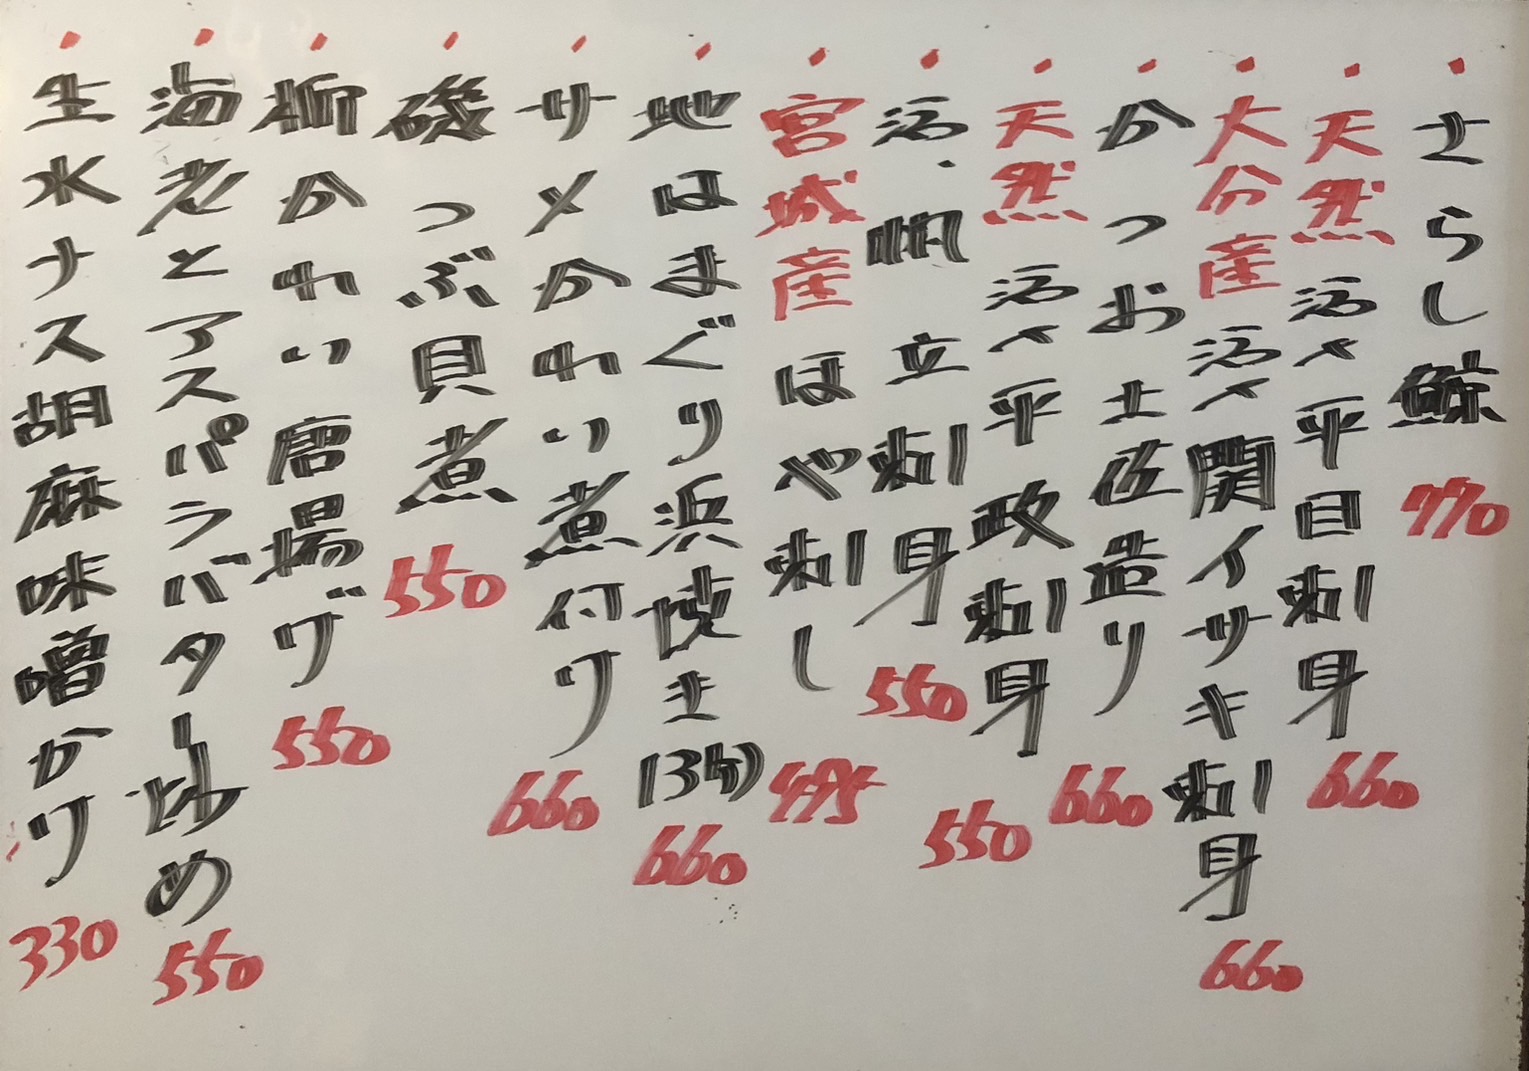 ・さらし鯨 770
・天然 活〆平目刺身 660
・大分産 活〆関イサキ刺身 660
・かつお土佐造り 660
・天然 活〆平政刺身 550
・活・帆立刺身 550
・宮城産 ほや刺し 495
・地はまぐり浜焼き(3ケ) 660
・サメかれい煮付け 660
・磯つぶ貝煮 550
・柳かれい唐揚げ 550
・海老とアスパラバター炒め 550
・生水ナス胡麻味噌かけ 330